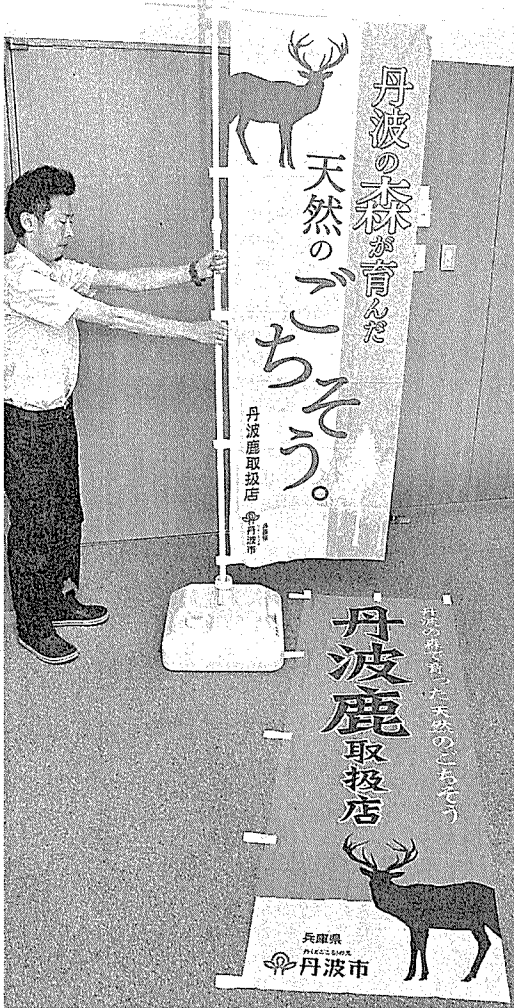 丹波の森が育んだ
天然の
ごちそう。
丹波鹿取扱店
兵庫県
丹波市
丹波の森で育った天然のごちそう
丹波鹿
取扱店
兵庫県
丹波市